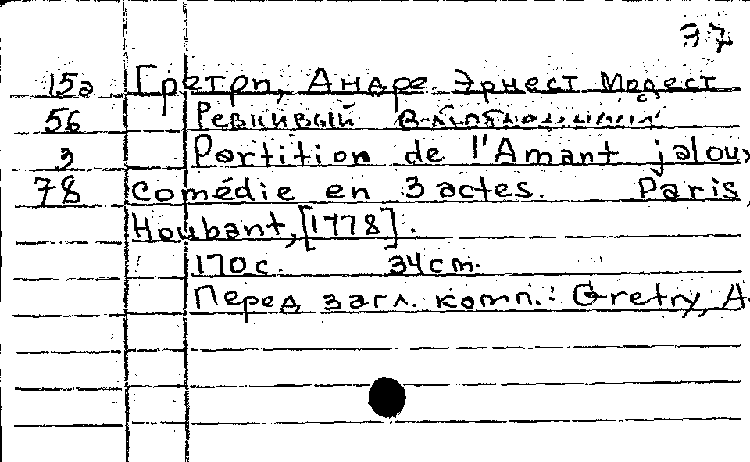 37
15а Гретри, Андре Эрнест Модест
56 Ревнивый влюбленный
3 Partition de l'Amant jaloux
78 comédie en 3 actes. Paris,
Houbant, [1778].
170 с. 34 cm.
Перед загл. комп.: Gretry, A.